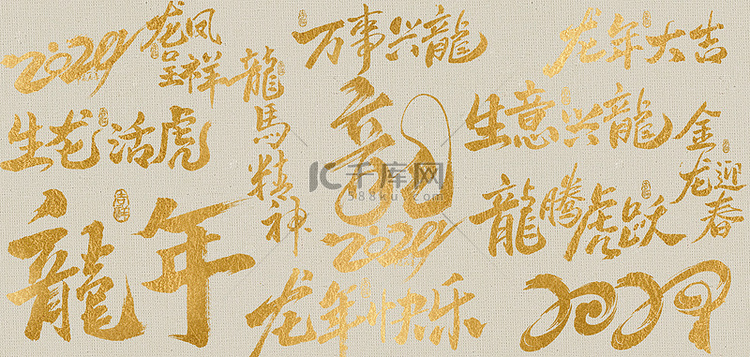 2024
龙凤
呈祥
万事兴龍
龙年大吉
生龙活虎
龍馬精神
龍
生意兴龍
金龙
迎春
龍年
吉祥
千库网
588ku.com
2024
龍腾虎跃
龙年快乐
2024